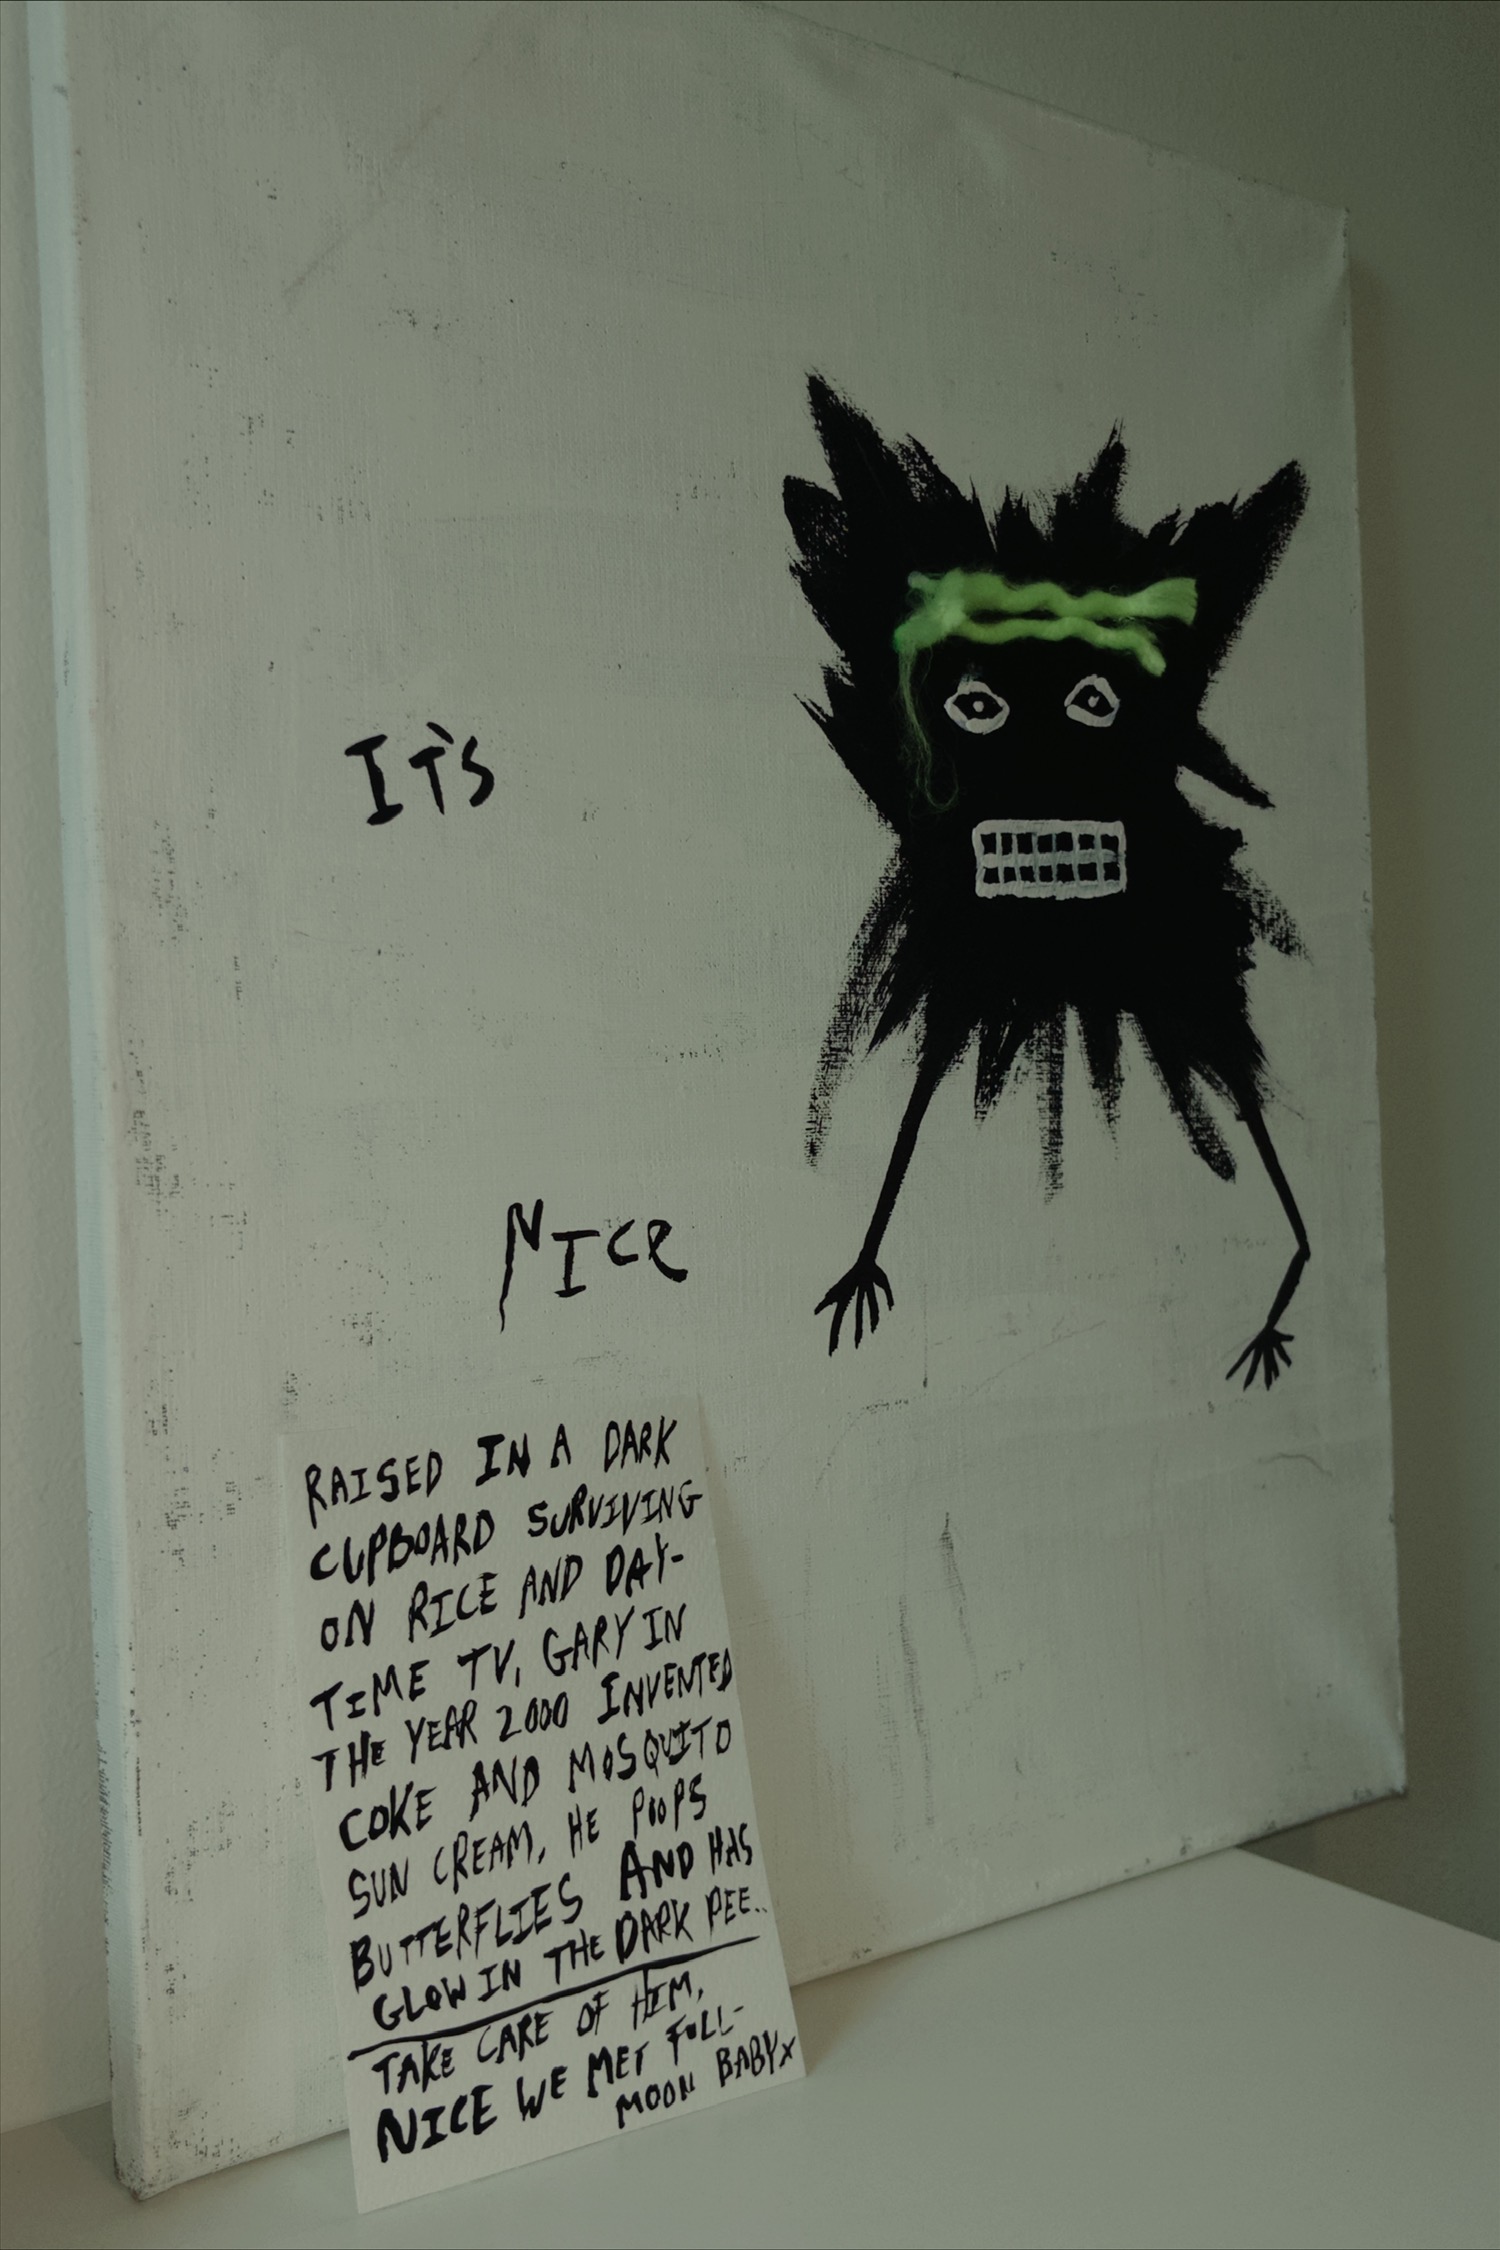 IT'S
NICE
RAISED IN A DARK
CUPBOARD SURVIVING
ON RICE AND DAY-
TIME TV, GARY IN
THE YEAR 2000 INVENTED
COKE AND MOSQUITO
SUN CREAM, HE POOPS
BUTTERFLIES AND HAS
GLOW IN THE DARK PEE..
TAKE CARE OF HIM,
NICE WE MET FULL-
MOON BABY x